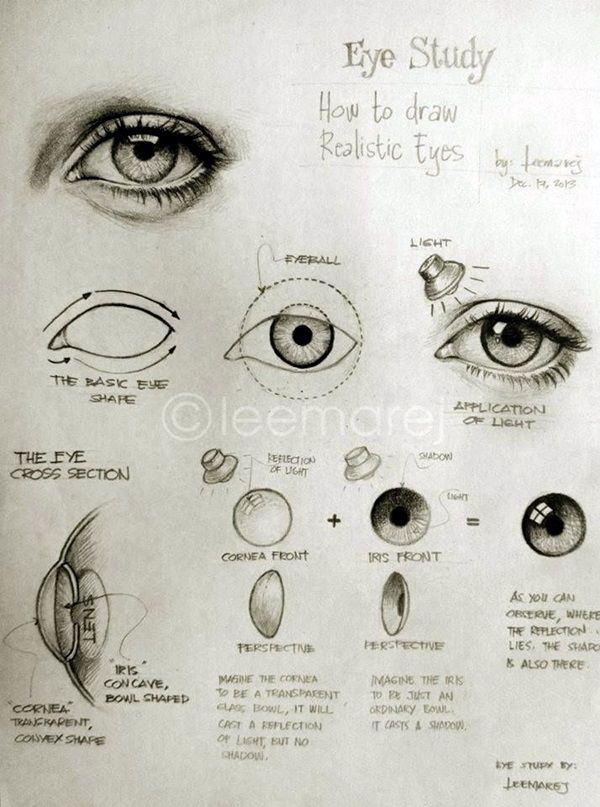 Eye Study
How to draw
Realistic Eyes
by: leemarej
Dec. 17, 2013
EYEBALL
LIGHT
THE BASIC EYE
SHAPE
APPLICATION
OF LIGHT
©leemarej
THE EYE
CROSS SECTION
REFLECTION
OF LIGHT
SHADOW
LIGHT
+
=
CORNEA FRONT
IRIS FRONT
PERSPECTIVE
PERSPECTIVE
LENS
"IRIS"
CONCAVE,
BOWL SHAPED
"CORNEA"
TRANSPARENT,
CONVEX SHAPE
IMAGINE THE CORNEA
TO BE A TRANSPARENT
GLASS BOWL, IT WILL
CAST A REFLECTION
OF LIGHT, BUT NO
SHADOW.
IMAGINE THE IRIS
TO BE JUST AN
ORDINARY BOWL.
IT CASTS A SHADOW.
AS YOU CAN
OBSERVE, WHERE
THE REFLECTION
LIES, THE SHADO
IS ALSO THERE.
EYE STUDY BY:
LEEMAREJ